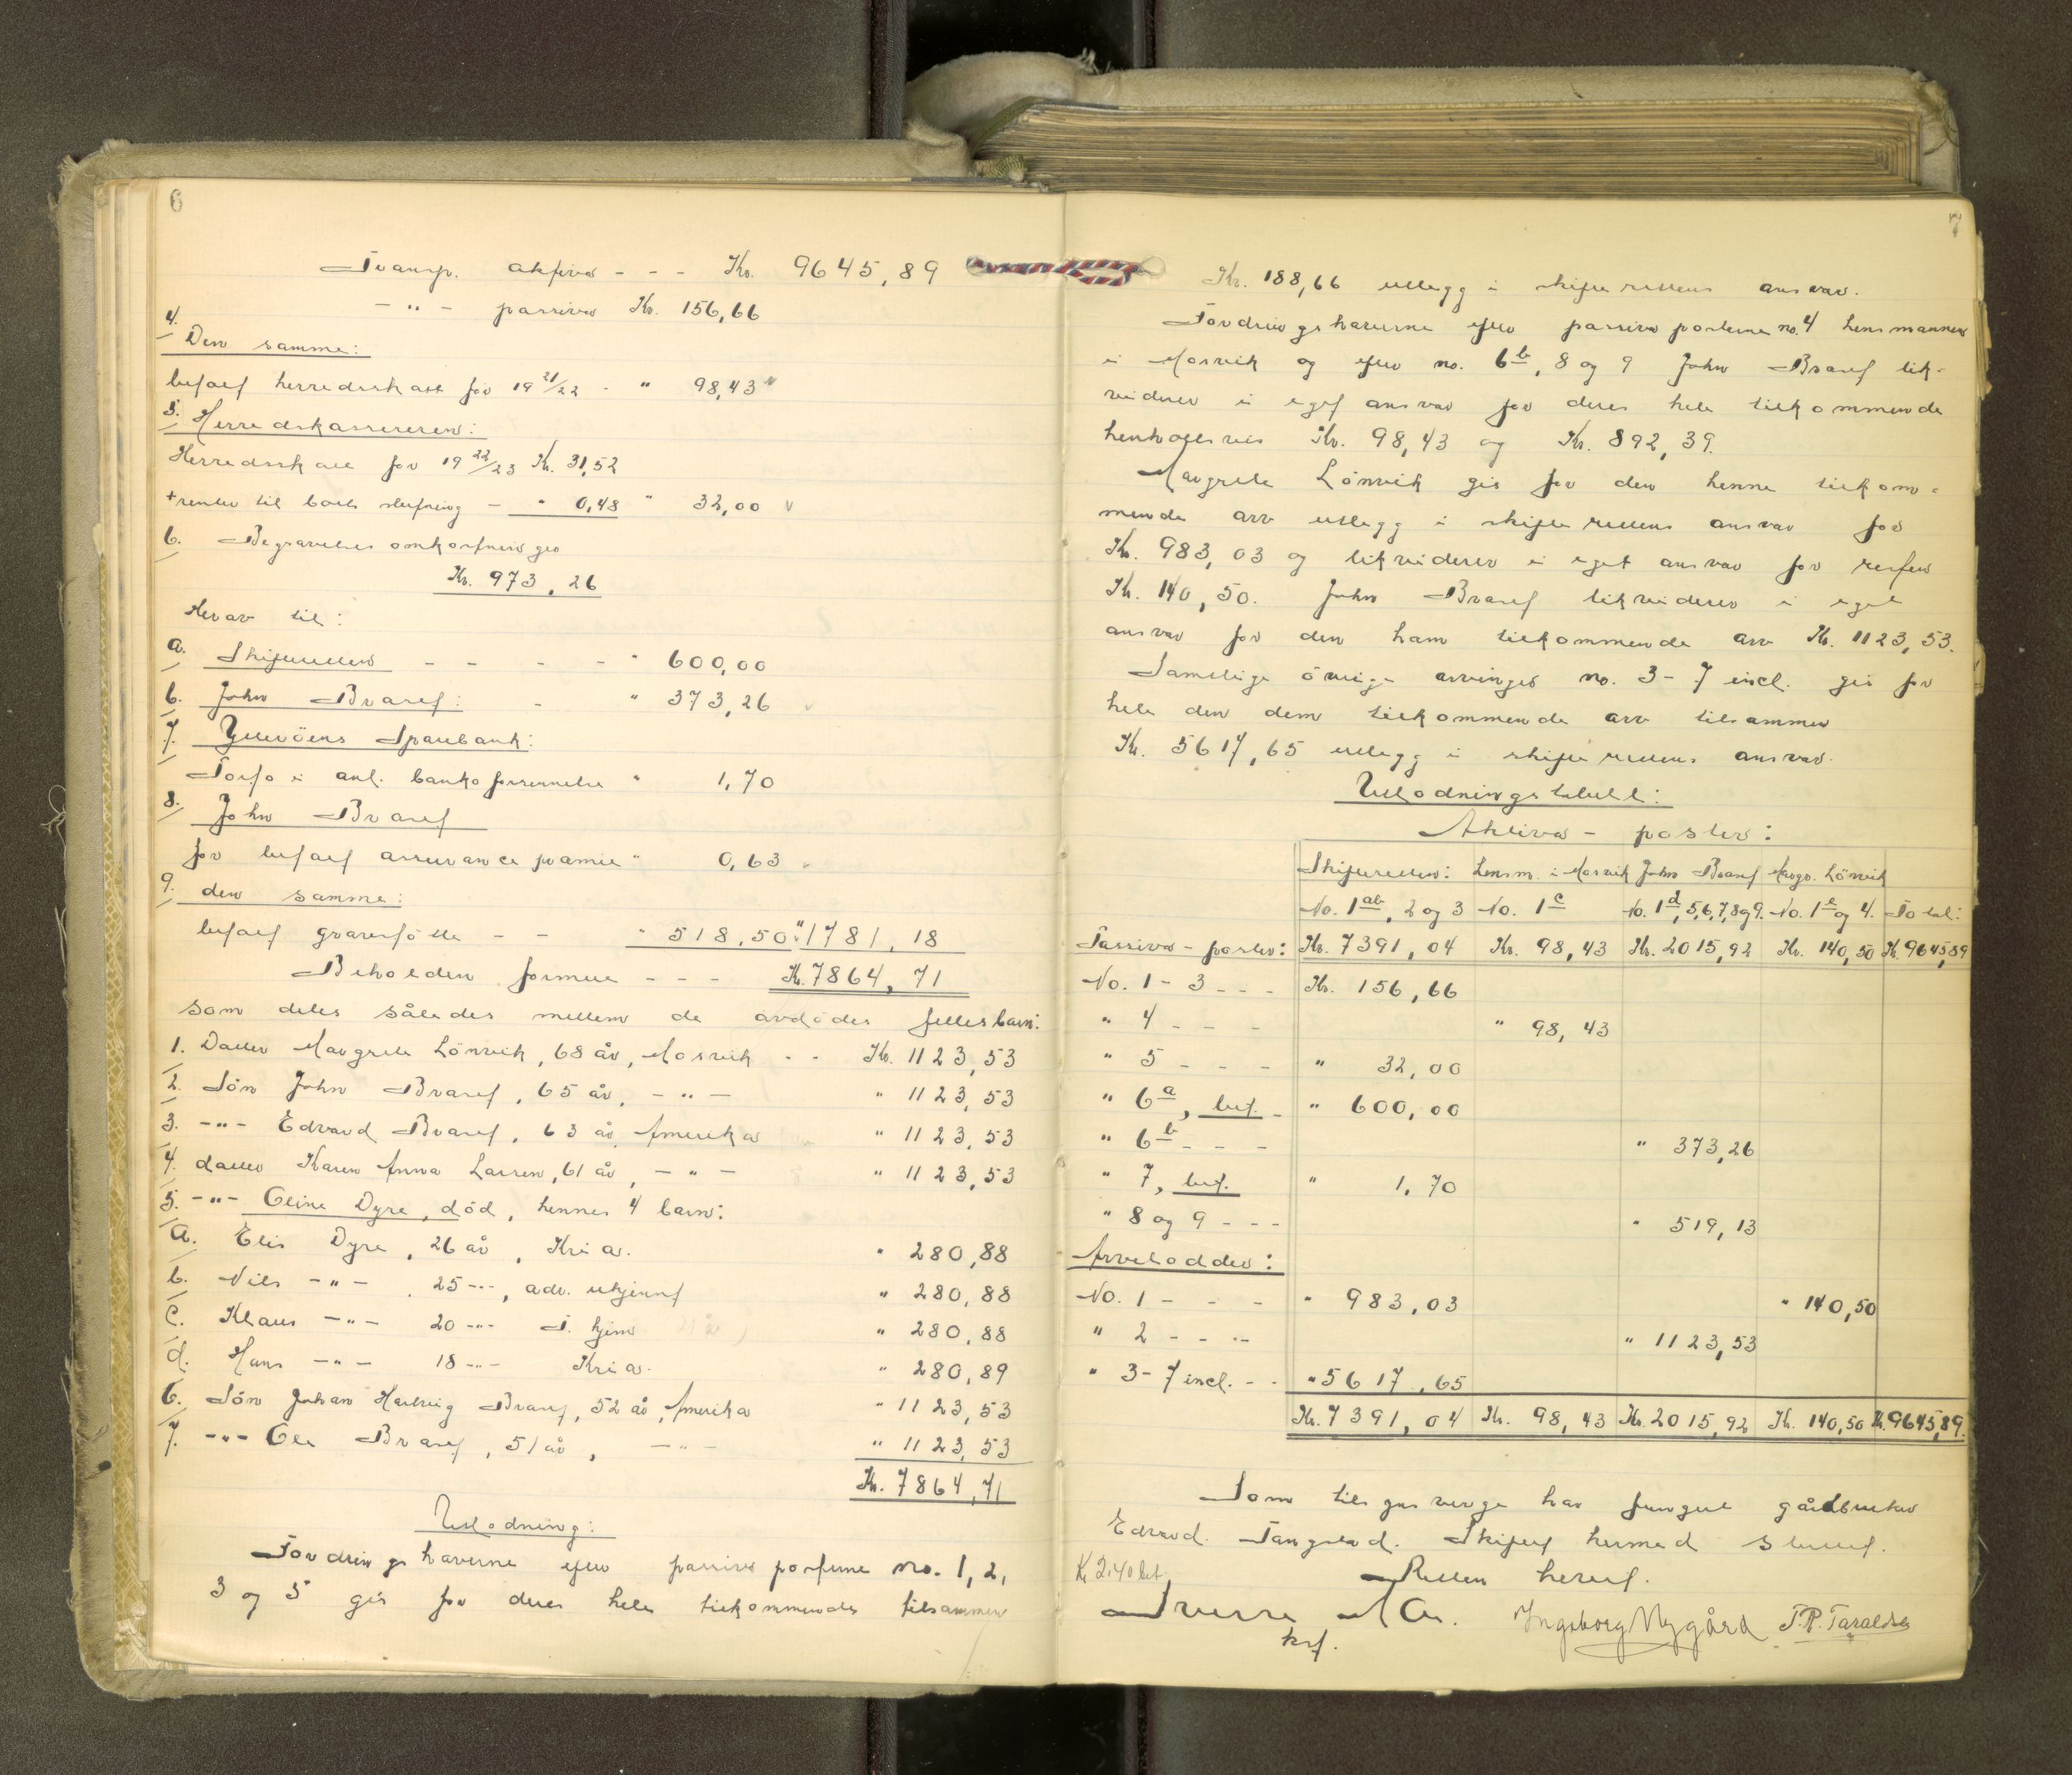 6
Transp. aktiva - - - Kr. 9645,89
- " - passiva Kr. 156,66
4.
Den samme:
betalt herredsskatt for 19 21/22 - " 98,43 "
5. Herredskassereren:
Herredsskatt for 19 22/23 Kr. 31,52
+ renter til boets slutning - " 0,48 " 32,00 v
6. Begravelses omkostninger
Kr. 973,26
Herav til:
a. Skifteretten - - - - " 600,00
b. John Braset: - " 373,26 v
7. Ytterøens Sparebank:
Porto i anl. banko forsennelse " 1,70
8. John Braset
for betalt assurance præmie " 0,63 v
9. den samme:
betalt gravestøtte - - " 518,50 " 1781,18
Beholden formue - - - Kr. 7864,71
som deles således mellem de avdødes fellesbarn:
1. Datter Margrete Lönvik, 68 år, Mosvik - - Kr. 1123,53
2. Sön John Braset, 65 år, - " - " 1123,53
3. - " - Edvard Braset, 63 år, Amerika " 1123,53
4. datter Karen Anna Larsen, 61 år, - " - " 1123,53
5. - " - Oline Dyre, död, hennes 4 barn:
a. Elis Dyre, 26 år, Kria. " 280,88
b. Nils - " - , 25 - " - , adr. ukjennt " 280,88
c. Klaus - " - 20 - " - T. hjem " 280,88
d. Hans - " - 18 - " - Kria. " 280,89
6. Sön Johan Hartvig Braset, 52 år, Amerika " 1123,53
7. - " - Ole Braset, 51 år, - " - " 1123,53
Kr. 7864,71
Utlodning:
Fordringshaverne efter passiva posterne no. 1, 2,
3 og 5 gis for deres hele tilkommende tilsammen
7
Kr. 188,66 utlegg i skifterettens ansvar.
Fordringshaverne efter passiva posterne no. 4 lensmannen
i Mosvik og efter no. 6 b, 8 og 9 John Braset lik-
viderer i eget ansvar for deres hele tilkommende
henholdsvis Kr. 98,43 og Kr. 892,39.
Margrete Lönvik gis for den henne tilkom-
mende arv utlegg i skifterettens ansvar for
Kr. 983,03 og likviderer i eget ansvar for resten
Kr. 140,50. John Braset likviderer i eget
ansvar for den ham tilkommende arv Kr. 1123,53.
Samtlige övrige arvinger no. 3 - 7 incl. gis for
hele den dem tilkommende arv tilsammen
Kr. 5617,65 utlegg i skifterettens ansvar.
Utlodningstabell:
Aktiva - poster:
Skifteretten: Lensm. i Mosvik John Braset Margr. Lönvik
No. 1 ab, 2 og 3 No. 1 c No. 1 d, 5, 6, 7, 8 og 9. No. 1 e og 4. Total:
Passiva - poster: Kr. 7391,04 Kr. 98,43 Kr. 2015,92 Kr. 140,50 Kr. 9645,89
No. 1 - 3 - - - Kr. 156,66
" 4 - - - " 98,43
" 5 - - - " 32,00
" 6 a, bet. - " 600,00
" 6 b - - - " 373,26
" 7, bet. " 1,70
" 8 og 9 - - - " 519,13
Arvelodder:
No. 1 - - - " 983,03 " 140,50
" 2 - - - " 1123,53
" 3 - 7 incl. - - " 5617,65
Kr. 7391,04 Kr. 98,43 Kr. 2015,92 Kr. 140,50 Kr. 9645,89.
Som tilsynsverge har fungert gårdbruker
Edvard Tangstad. Skiftet hermed sluttet.
Kr 2,40 bet. Retten hevet.
Sverre Ingeborg Nygård T. R. Taraldsen
kst.